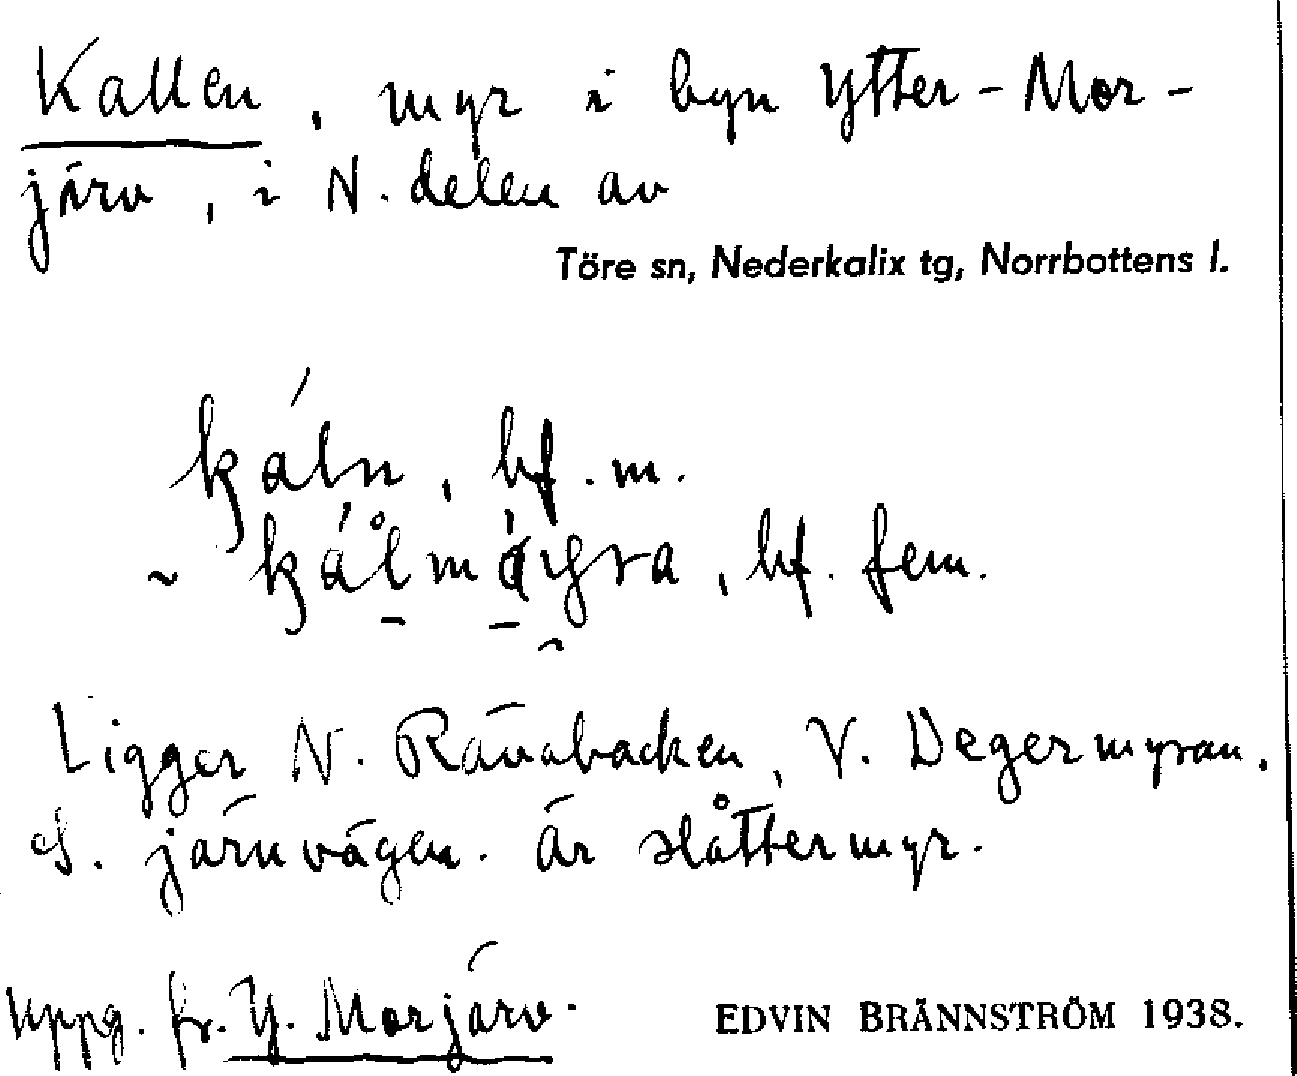 Kallen, myr i byn Ytter-Mor-
järv, i N. delen av
Töre sn, Nederkalix tg, Norrbottens l.
káln, bf. m.
~ kålmýra, bf. fem.
Ligger N. Rävabacken, V. Degermyran.
S. järnvägen. Är slåttermyr.
Uppg. fr. Y. Morjärv.
EDVIN BRÄNNSTRÖM 1938.